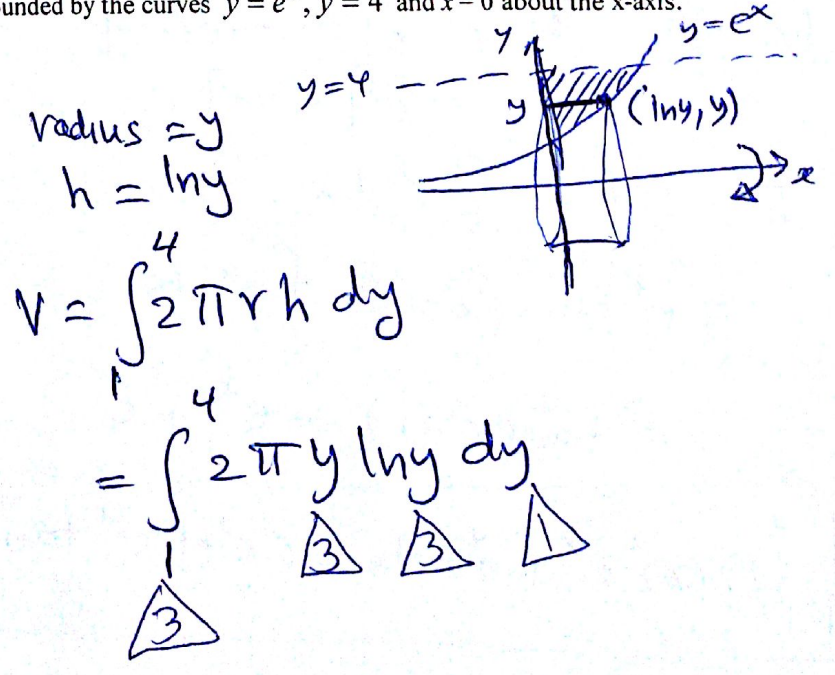 unded by the curves y = e , y = 4 and x = 0 about the x-axis.
y
y=e^x
y=4
y
(lny, y)
x
radius = y
h = lny
V = ∫_1^4 2πrh dy
= ∫_1^4 2πy lny dy
3 3 1
3